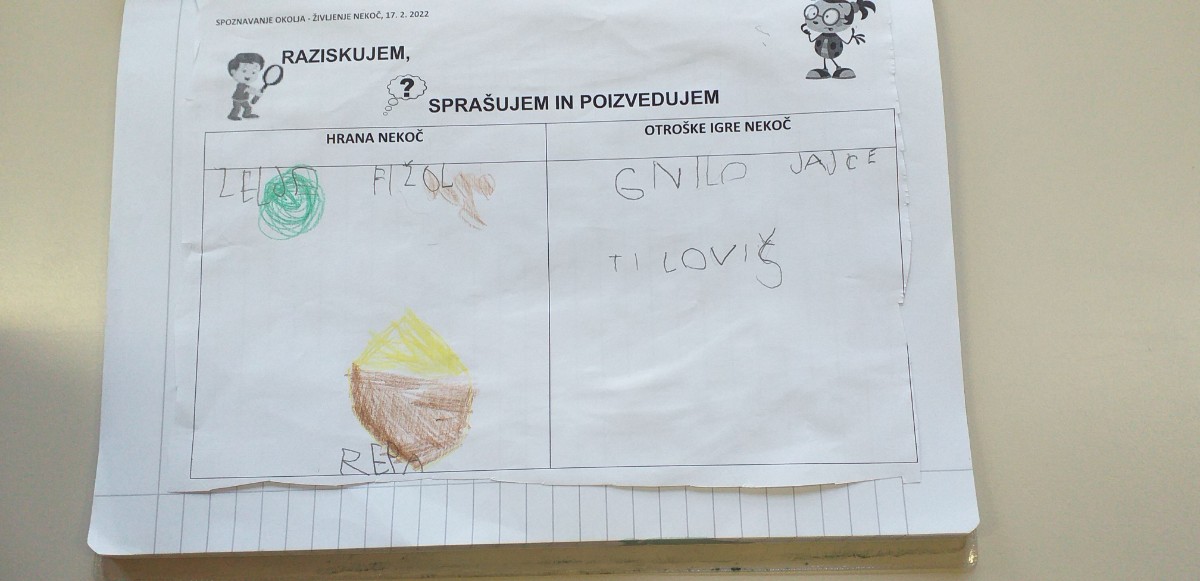 SPOZNAVANJE OKOLJA - ŽIVLJENJE NEKOČ, 17. 2. 2022
RAZISKUJEM,
?
SPRAŠUJEM IN POIZVEDUJEM
HRANA NEKOČ
OTROŠKE IGRE NEKOČ
FIŽOL
GNILO JAJCE
TI LOVIŠ
REPA